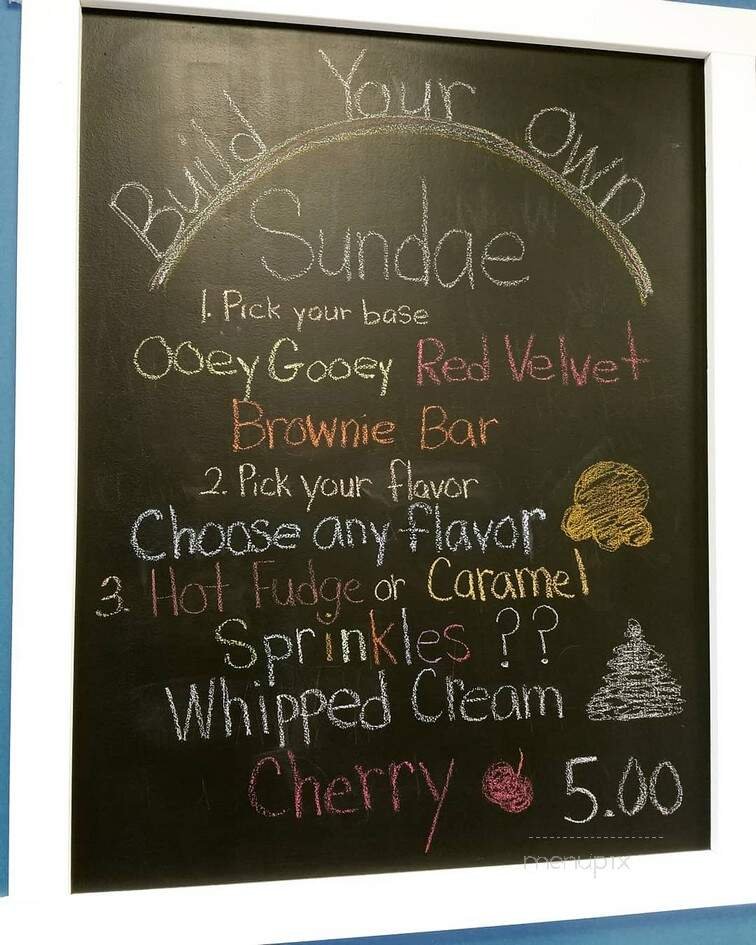 Build Your Own
Sundae
1. Pick your base
Ooey Gooey Red Velvet
Brownie Bar
2. Pick your flavor
Choose any flavor
3. Hot Fudge or Caramel
Sprinkles ??
Whipped Cream
Cherry 5.00
menupix